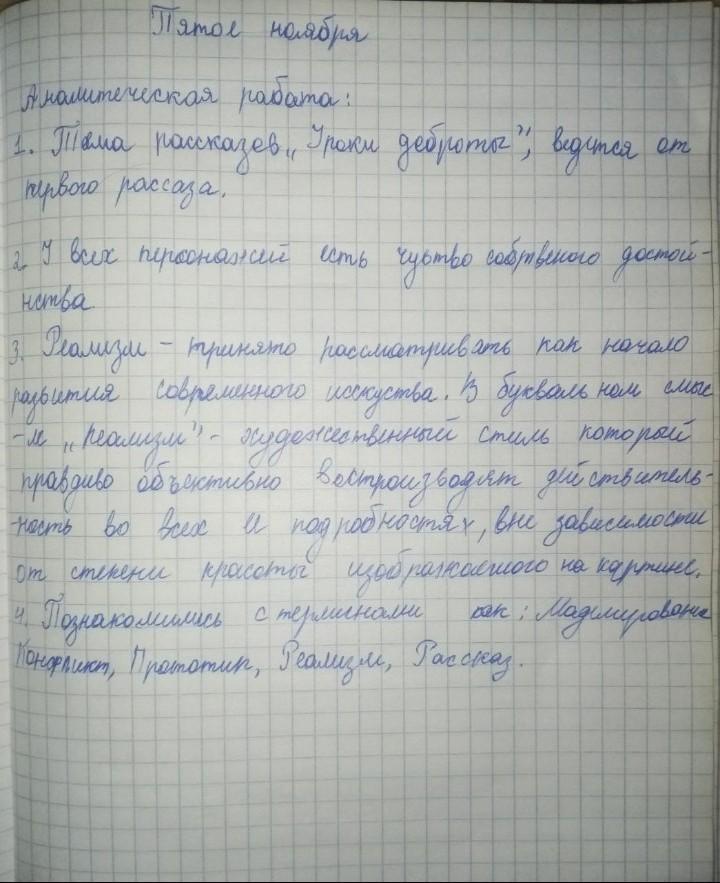 Пятое ноября
Аналитеческая работа:
1. Тема рассказов „Уроки доброты”, ведится от
первого рассаза.
2. У всех персонажей есть чувтво собтвеного достой-
нства
3. Реализм – принято рассматривать как начало
развития современного исскуства. В букваль ном смыс
-ле „реализм” - художественный стиль который
правдиво объективно воспроизводят действитель-
-ность во всех её подробностях, вне зависимости
от степени красоты изображаемого на картине.
4. Познакомились с терминами как: Маделирование
Конфликт, Прототип, Реализм, Рассказ.